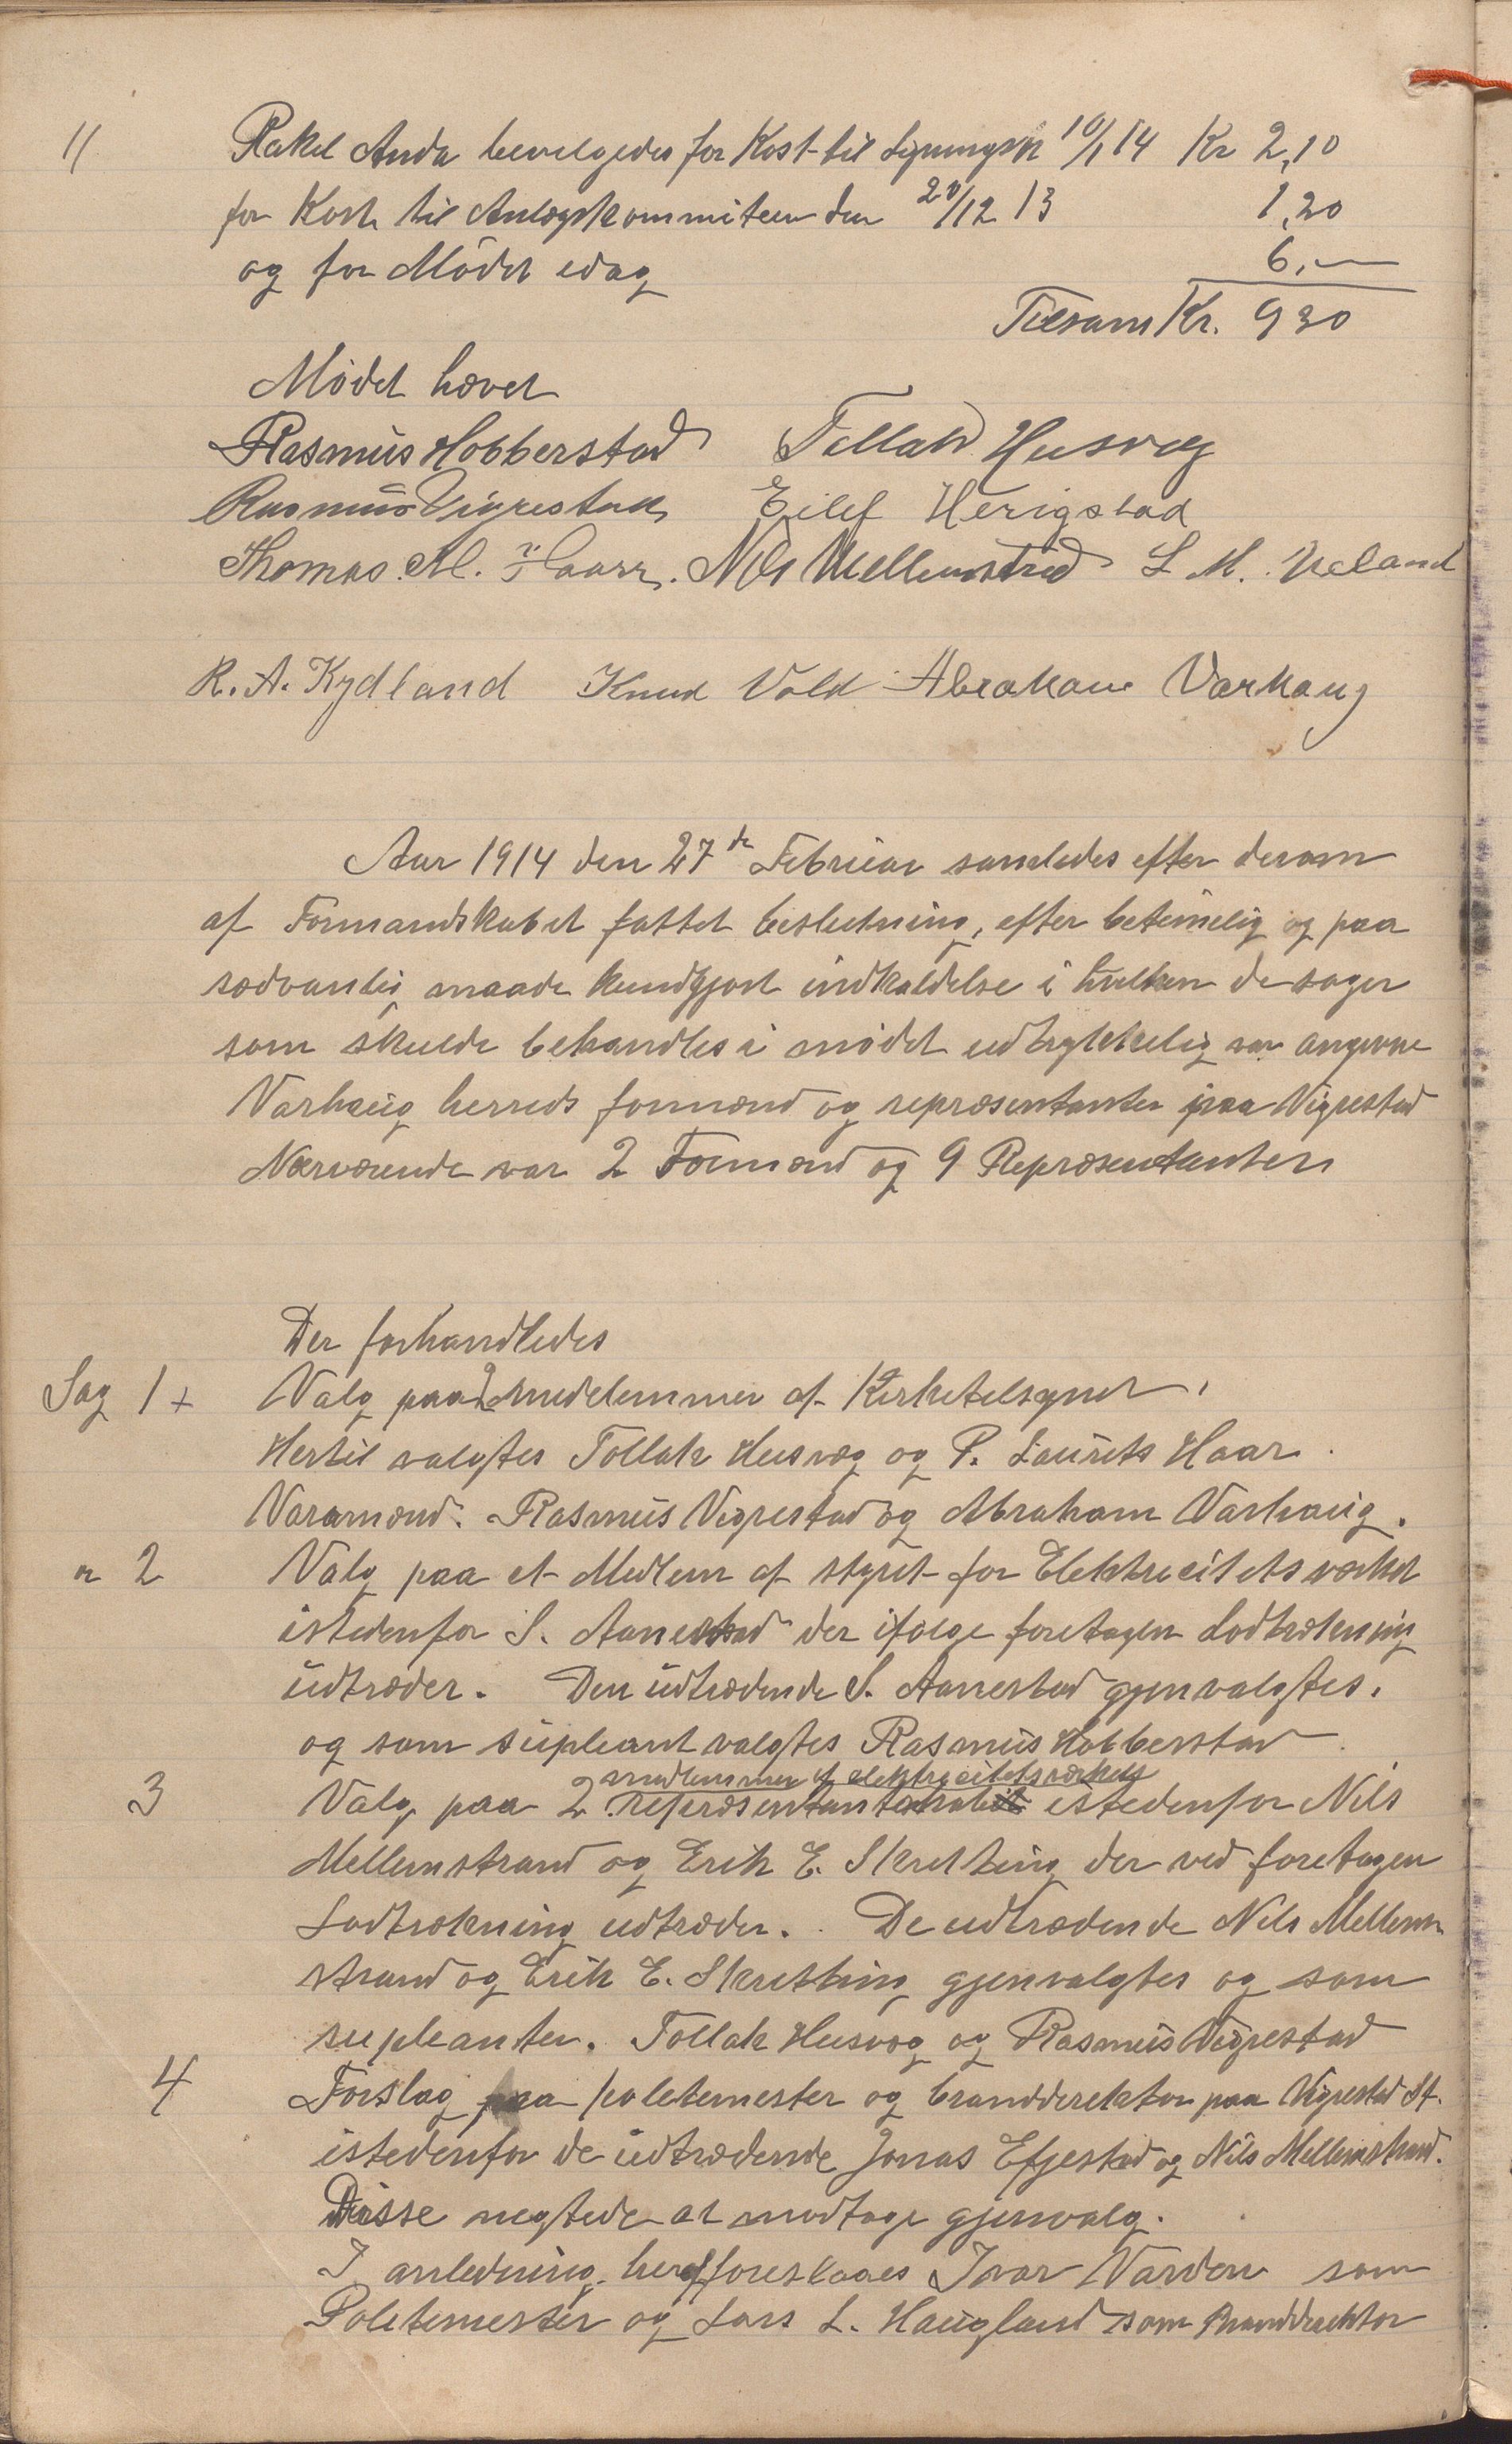 11 Rakel Anda bevilgedes for Kost til Ligningsk 10/1 14 Kr 2,10
for Kost til Anlægskommiteen den 20/12 13 1,20
og for Mødet idag 6,—
Tilsam Kr. 9 30
Mødet hævet
Rasmus Hobberstad Tollak Husveg
Rasmus Vigrestad Eilef Herigstad
Thomas. M. Haarr. Nils Mellemstrand L M. Ueland
R. A. Kydland Knud Vold Abraham Varhaug
Aar 1914 den 27de Februar samledes efter derom
af Formandskabet fattet beslutning, efter betimelig og paa
sædvanlig maade kundgjort indkaldelse i hvilken de sager
som skulde behandles i mødet udtrykkelig var angivne
Varhaug herreds formænd og repræsentanter paa Vigrestad
Nærværende var 2 Formænd og 9 Repræsentanter
Der forhandledes
Sag 1 + Valg paa 2 medlemmer af Kirketilsynet.
Hertil valgtes Tollak Husveg og P. Laurits Haar.
Varamænd. Rasmus Vigrestad og Abraham Varhaug.
" 2 Valg paa et Medlem af styret for Elektricitetsværket
istedenfor S. Aanestad der ifølge foretagen Lodtrækning
udtræder. Den udtrædende S. Aanestad gjenvalgtes.
og som supleant valgtes Rasmus Hobberstad
medlemmer af elektricitetsværkets
3 Valg paa 2 repræsentantskab istedenfor Nils
Mellemstrand og Erik E. Skretting der ved foretagen
Lodtrækning udtræder. De udtrædende Nils Mellem
strand og Erik E. Skretting gjenvalgtes og som
supleanter. Tollak Husveg og Rasmus Vigrestad
4 Forslag paa politemester og branddirektør paa Vigrestad St.
istedenfor de udtrædende Jonas Efjestad og Nils Mellemstrand.
Disse negtede at modtage gjenvalg.
I anledning heraf foreslaaes Ivar Varden som
Politemester og Lars L. Haugland som Branddirektør